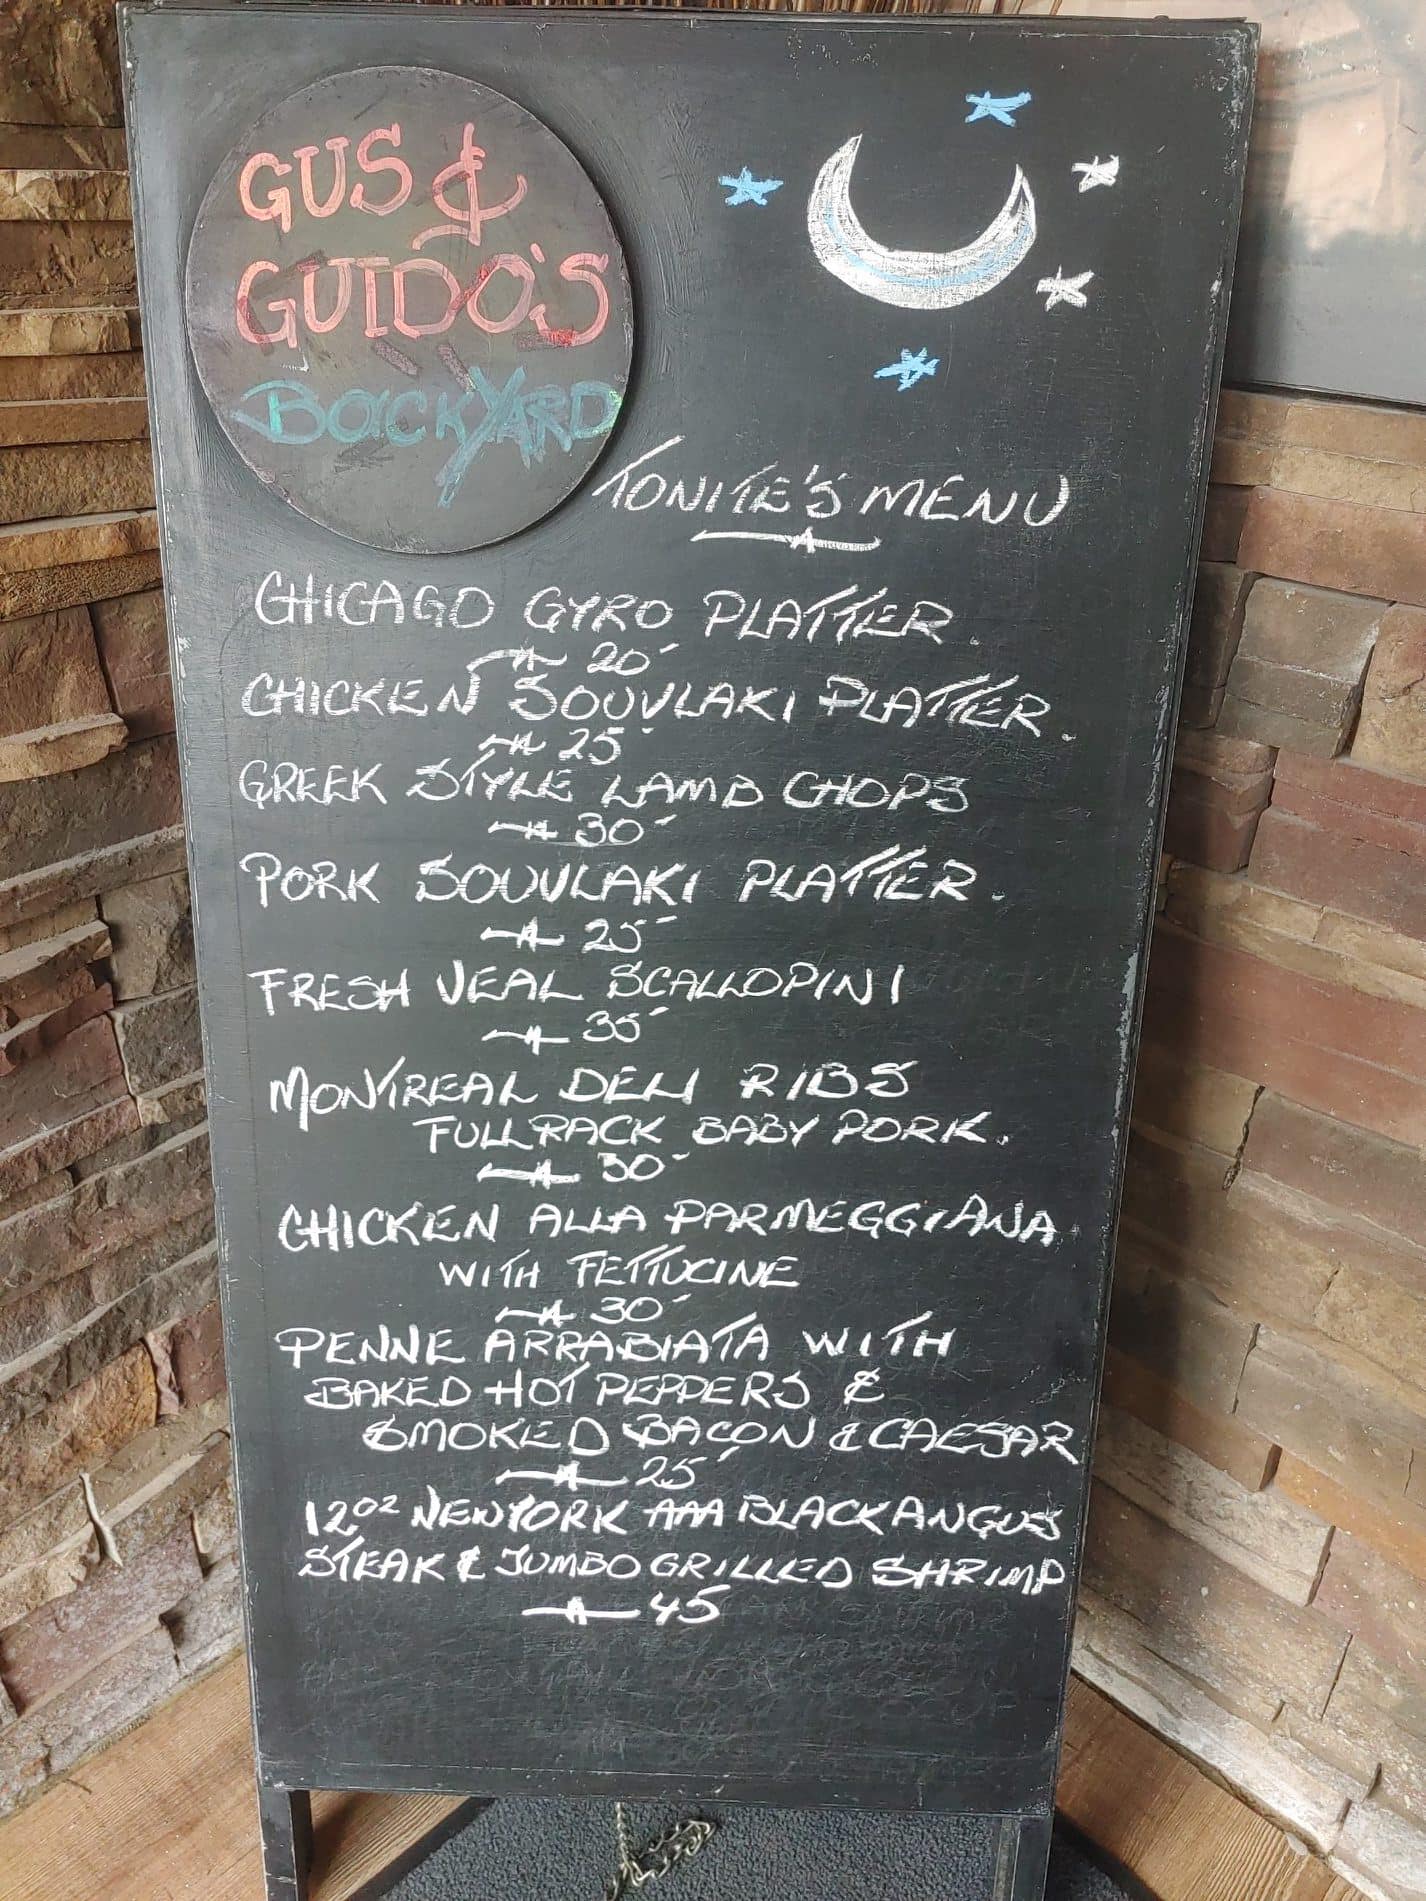 GUS &
GUIDO'S
BACKYARD
TONITE'S MENU
CHICAGO GYRO PLATTER.
20-
CHICKEN SOUVLAKI PLATTER.
25-
GREEK STYLE LAMB CHOPS
30-
PORK SOUVLAKI PLATTER.
25-
FRESH VEAL SCALLOPINI
35-
MONTREAL DELI RIBS
FULL RACK BABY PORK.
30-
CHICKEN ALLA PARMEGGIANA
WITH FETTUCINE
30-
PENNE ARRABIATA WITH
BAKED HOT PEPPERS &
SMOKED BACON & CAESAR
25-
12oz NEWYORK AAA BLACK ANGUS
STEAK & JUMBO GRILLED SHRIMP
45